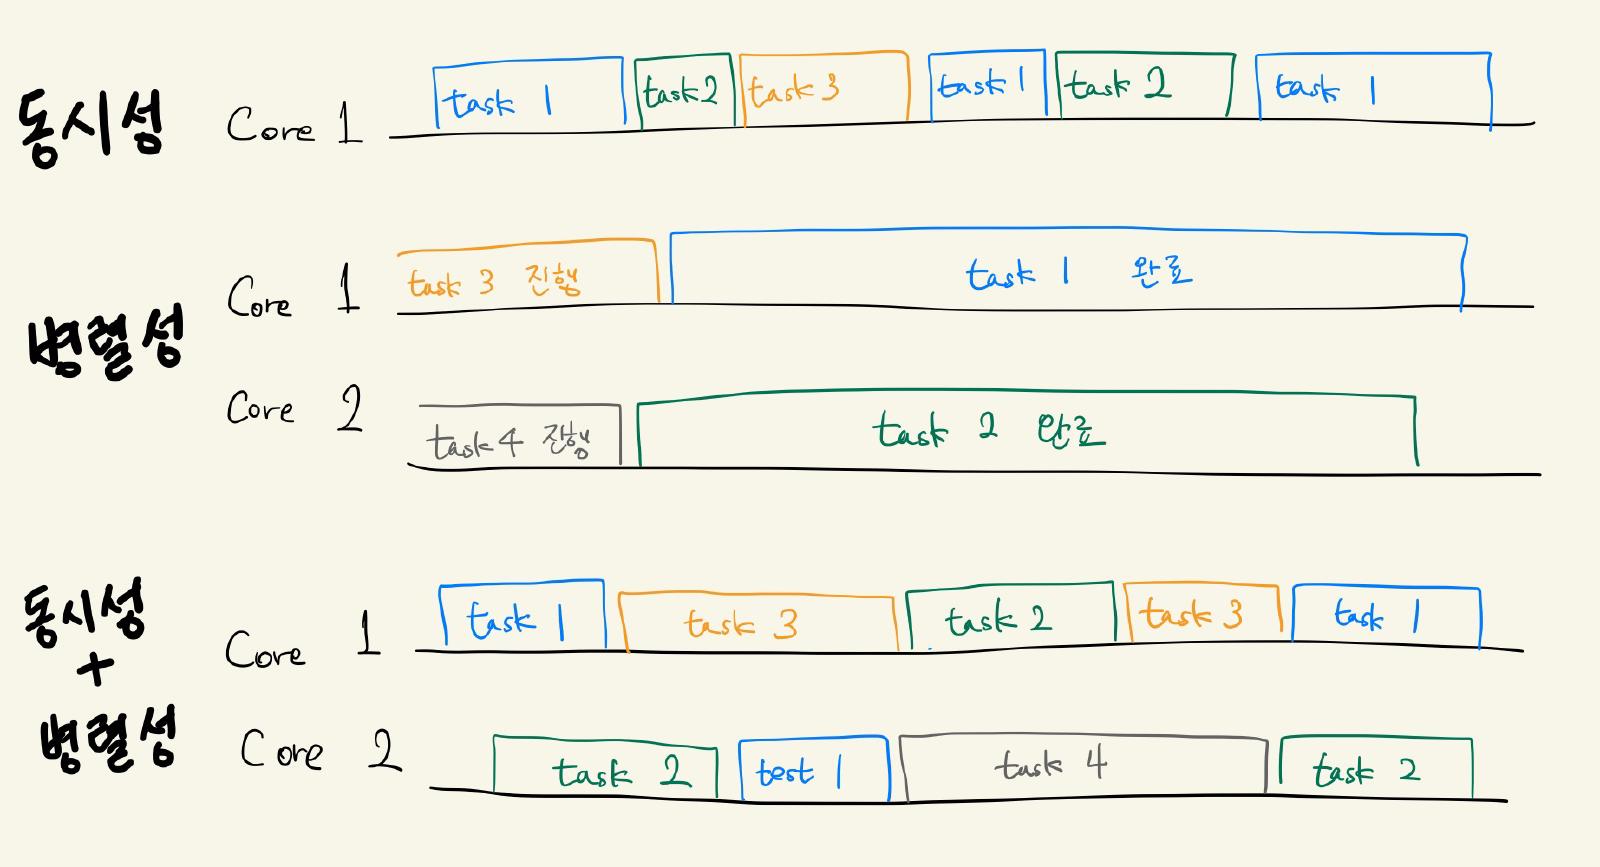 동시성 Core 1 task 1 task2 task 3 task 1 task 2 task 1
병렬성 Core 1 task 3 진행 task 1 완료
Core 2 task4 진행 task 2 완료
동시성
+
병렬성
Core 1 task 1 task 3 task 2 task 3 task 1
Core 2 task 2 test 1 task 4 task 2